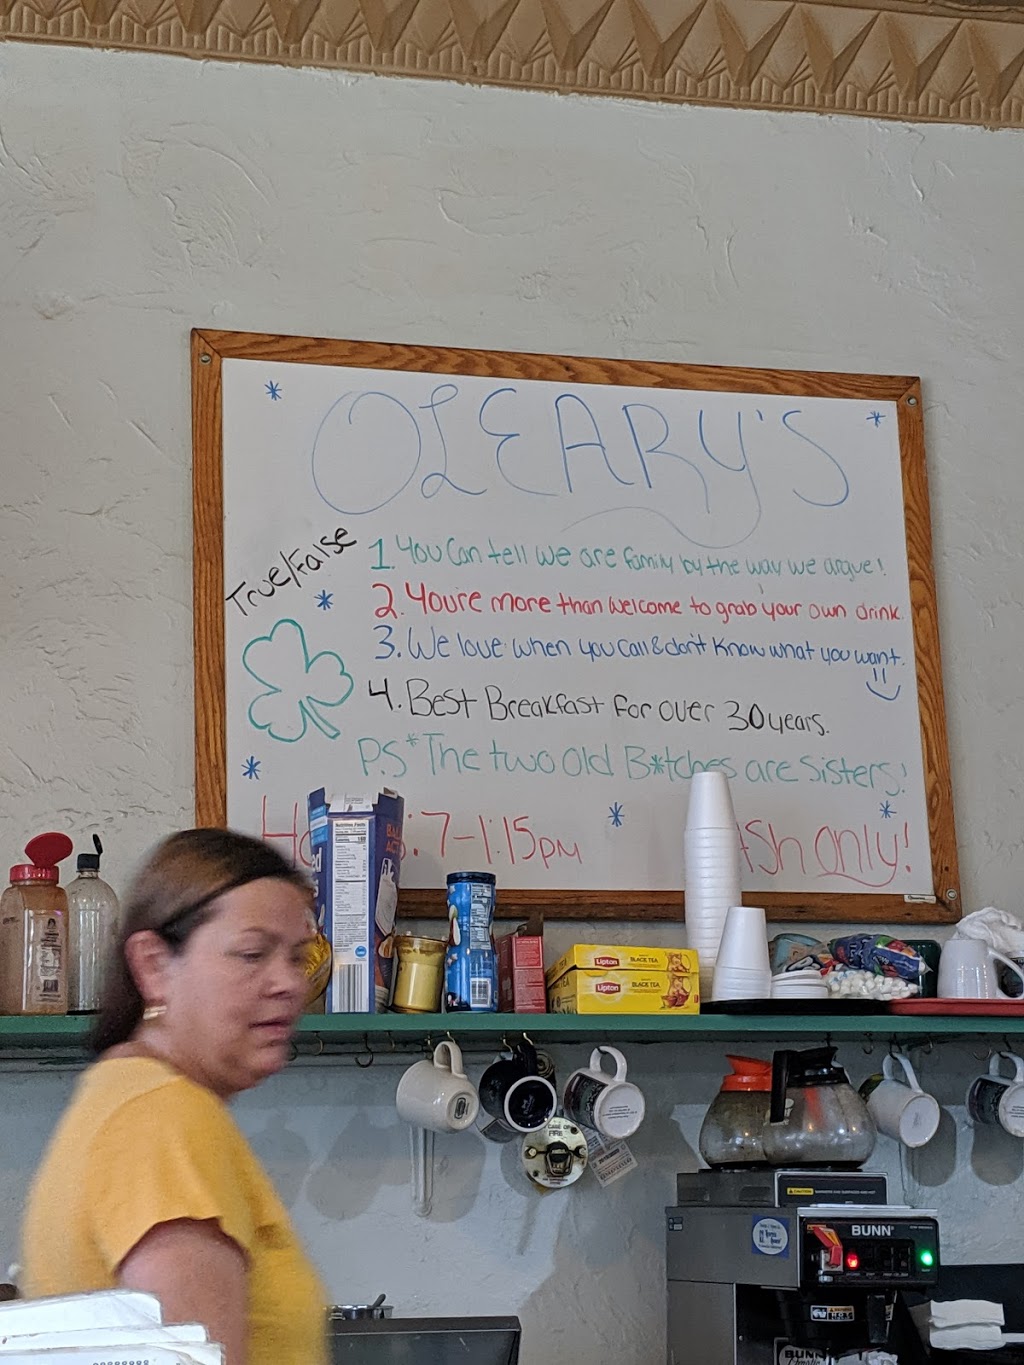 OLEARY'S
True/False
1. You can tell we are family by the way we argue!
2. You're more than welcome to grab your own drink.
3. We love when you call & don't know what you want.
4. Best Breakfast for over 30 years.
P.S* The two old B*tches are sisters!
:7-1:15pm
only!
Nutrition Facts
Lipton
BLACK TEA
Lipton
BLACK TEA
CAUTION
BUNN